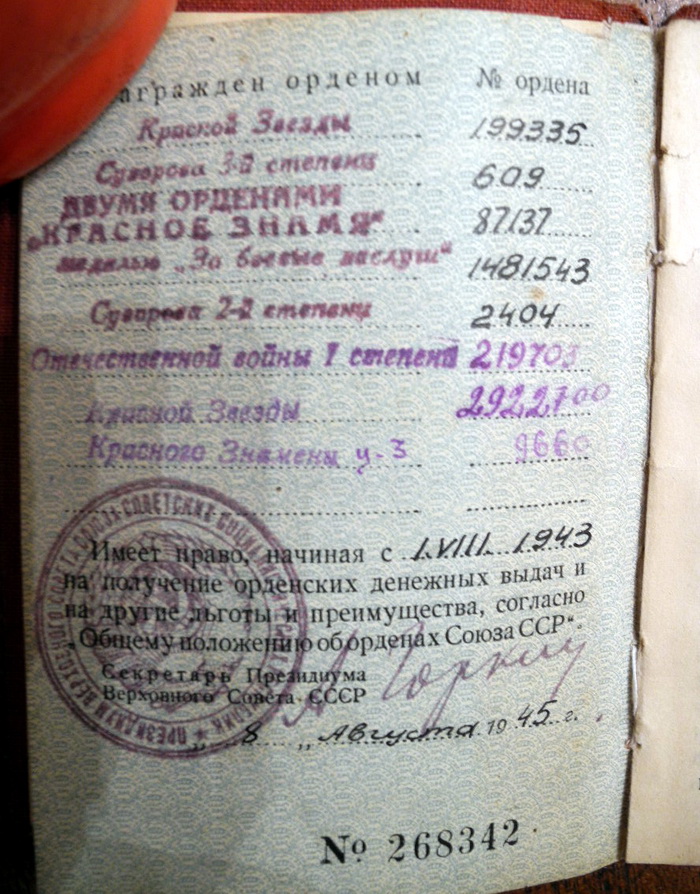 аграждён орденом № ордена
Красной Звезды 199335
Суворова 3-й степени 609
ДВУМЯ ОРДЕНАМИ
„КРАСНОЕ ЗНАМЯ“ 87137
медалью „За боевые заслуги“ 1481543
Суворова 2-й степени 2404
Отечественной войны I степени 219705
Красной Звезды 2922700
Красного Знамени у-3 9660
Имеет право, начиная с 1.VIII. 1943
на получение орденских денежных выдач и
на другие льготы и преимущества, согласно
„Общему положению об орденах Союза ССР“.
Секретарь Президиума
Верховного Совета СССР
А Горкин
„ 8 „ Августа 1945 г.
№ 268342
ПРЕЗИДИУМ ВЕРХОВНОГО СОВЕТА СОЮЗА СОВЕТСКИХ